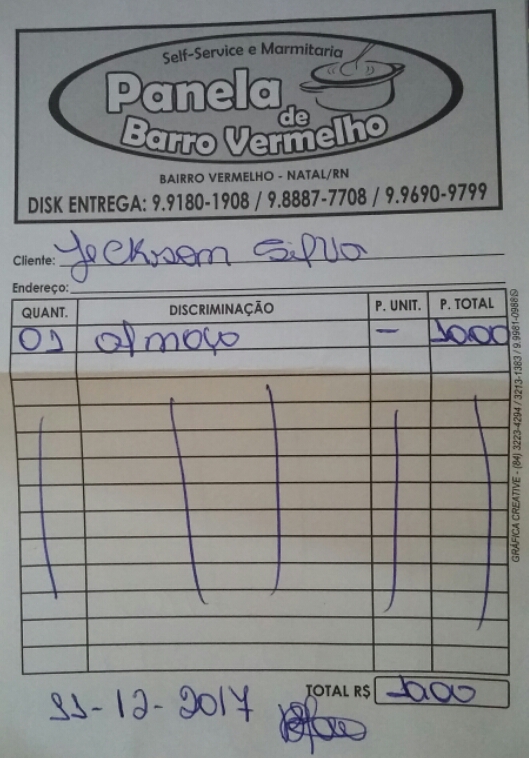 Self-Service e Marmitaria
Panela
de
Barro Vermelho
BAIRRO VERMELHO - NATAL/RN
DISK ENTREGA: 9.9180-1908 / 9.8887-7708 / 9.9690-9799
Cliente: Jeckson Silva
Endereço:
QUANT. DISCRIMINAÇÃO P. UNIT. P. TOTAL
01 almoço – 10,00
TOTAL R$ 10,00
11-12-2017
GRÁFICA CREATIVE - (84) 3223-4294 / 3213-1383 / 9.9981-0988